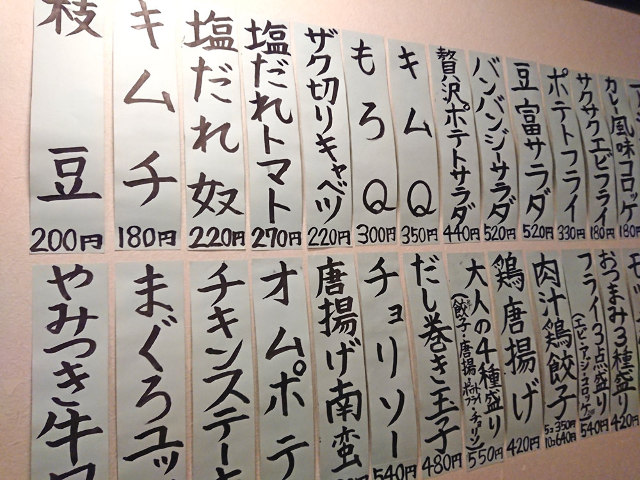 枝豆
200円
キムチ
180円
塩だれ奴
220円
塩だれトマト
270円
ザク切りキャベツ
220円
もろQ
300円
キムQ
350円
贅沢ポテトサラダ
440円
バンバンジーサラダ
520円
豆富サラダ
520円
ポテトフライ
330円
サクサクエビフライ
180円
カレー風味コロッケ
180円
やみつき牛
まぐろユッ
チキンステーキ
オムポテ
唐揚げ南蛮
チョリソー
540円
だし巻き玉子
480円
大人の4種盛り
550円
鶏唐揚げ
420円
肉汁鶏餃子
5コ350円
10コ640円
フライ3点盛り
(エビ・アジ・コロッケ)
540円
おつまみ3種盛り
420円